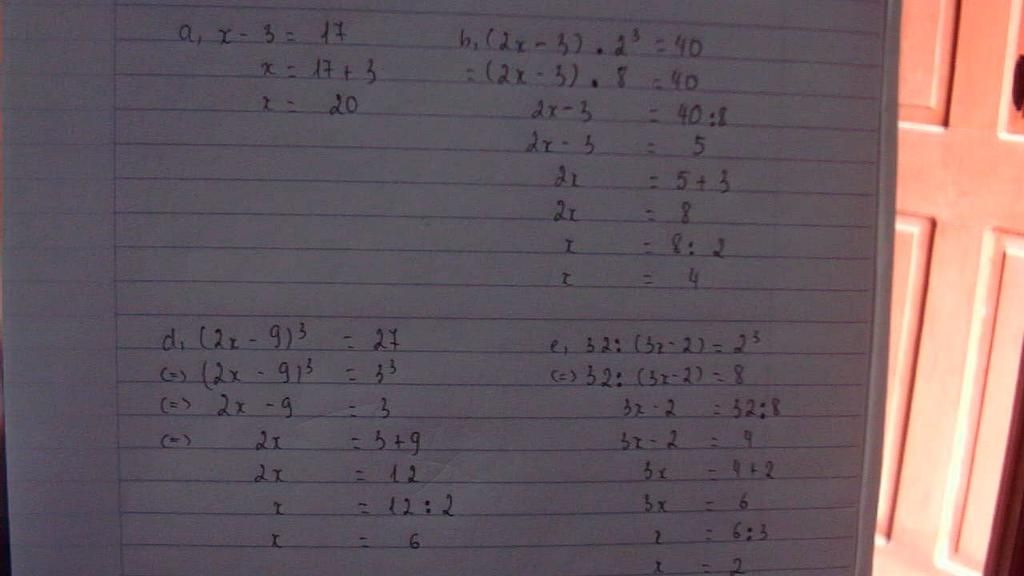 a, x - 3 = 17
x = 17 + 3
x = 20
b, (2x - 3) . 2³ = 40
= (2x - 3) . 8 = 40
2x - 3 = 40 : 8
2x - 3 = 5
2x = 5 + 3
2x = 8
x = 8 : 2
x = 4
d, (2x - 9)³ = 27
(=) (2x - 9)³ = 3³
(=) 2x - 9 = 3
(=) 2x = 3 + 9
2x = 12
x = 12 : 2
x = 6
e, 32 : (3x - 2) = 2³
(=) 32 : (3x - 2) = 8
3x - 2 = 32 : 8
3x - 2 = 4
3x = 4 + 2
3x = 6
x = 6 : 3
x = 2